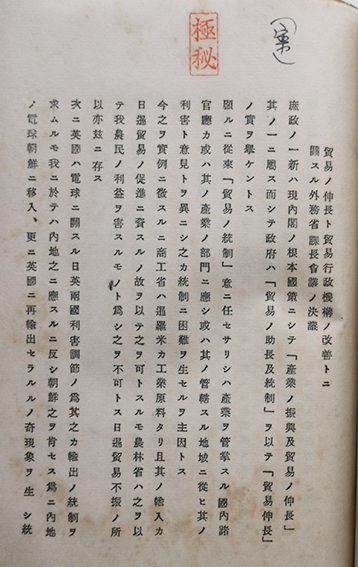 極秘
貿易ノ伸長ト貿易行政機構ノ改善トニ
關スル外務省課長會議ノ決議
庶政ノ一新ハ現內閣ノ根本國策ニシテ「產業ノ振興及貿易ノ伸長」
其ノ一ニ屬ス而シテ政府ハ「貿易ノ助長及統制」ヲ以テ「貿易伸長」
ノ實ヲ擧ケントス
顧ルニ從來「貿易ノ統制」意ニ任セサリシハ產業ヲ管掌スル國內諸
官廳カ或ハ其ノ產業ノ部門ニ應シ或ハ其ノ管轄スル地域ニ從ヒ其ノ
利害ト意見トヲ異ニシ之カ統制ニ困難ヲ生セルヲ主因トス
今之ヲ實例ニ徵スルニ商工省ハ暹羅米カ工業原料タリ且其ノ輸入カ
日暹貿易ノ促進ニ資スルノ故ヲ以テ之ヲ可トスルモ農林省ハ之ヲ以
テ我農民ノ利益ヲ害スルモノト爲シ之ヲ不可トス日暹貿易不振ノ所
以亦玆ニ存ス
次ニ英國ハ電球ニ關スル日英兩國利害調節ノ爲其之カ輸出ノ統制ヲ
求ムルモ我ニ於テハ內地之ニ應スルニ反シ朝鮮之ヲ肯セス爲ニ內地
ノ電球朝鮮ニ移入、更ニ英國ニ再輸出セラルルノ奇現象ヲ生シ統